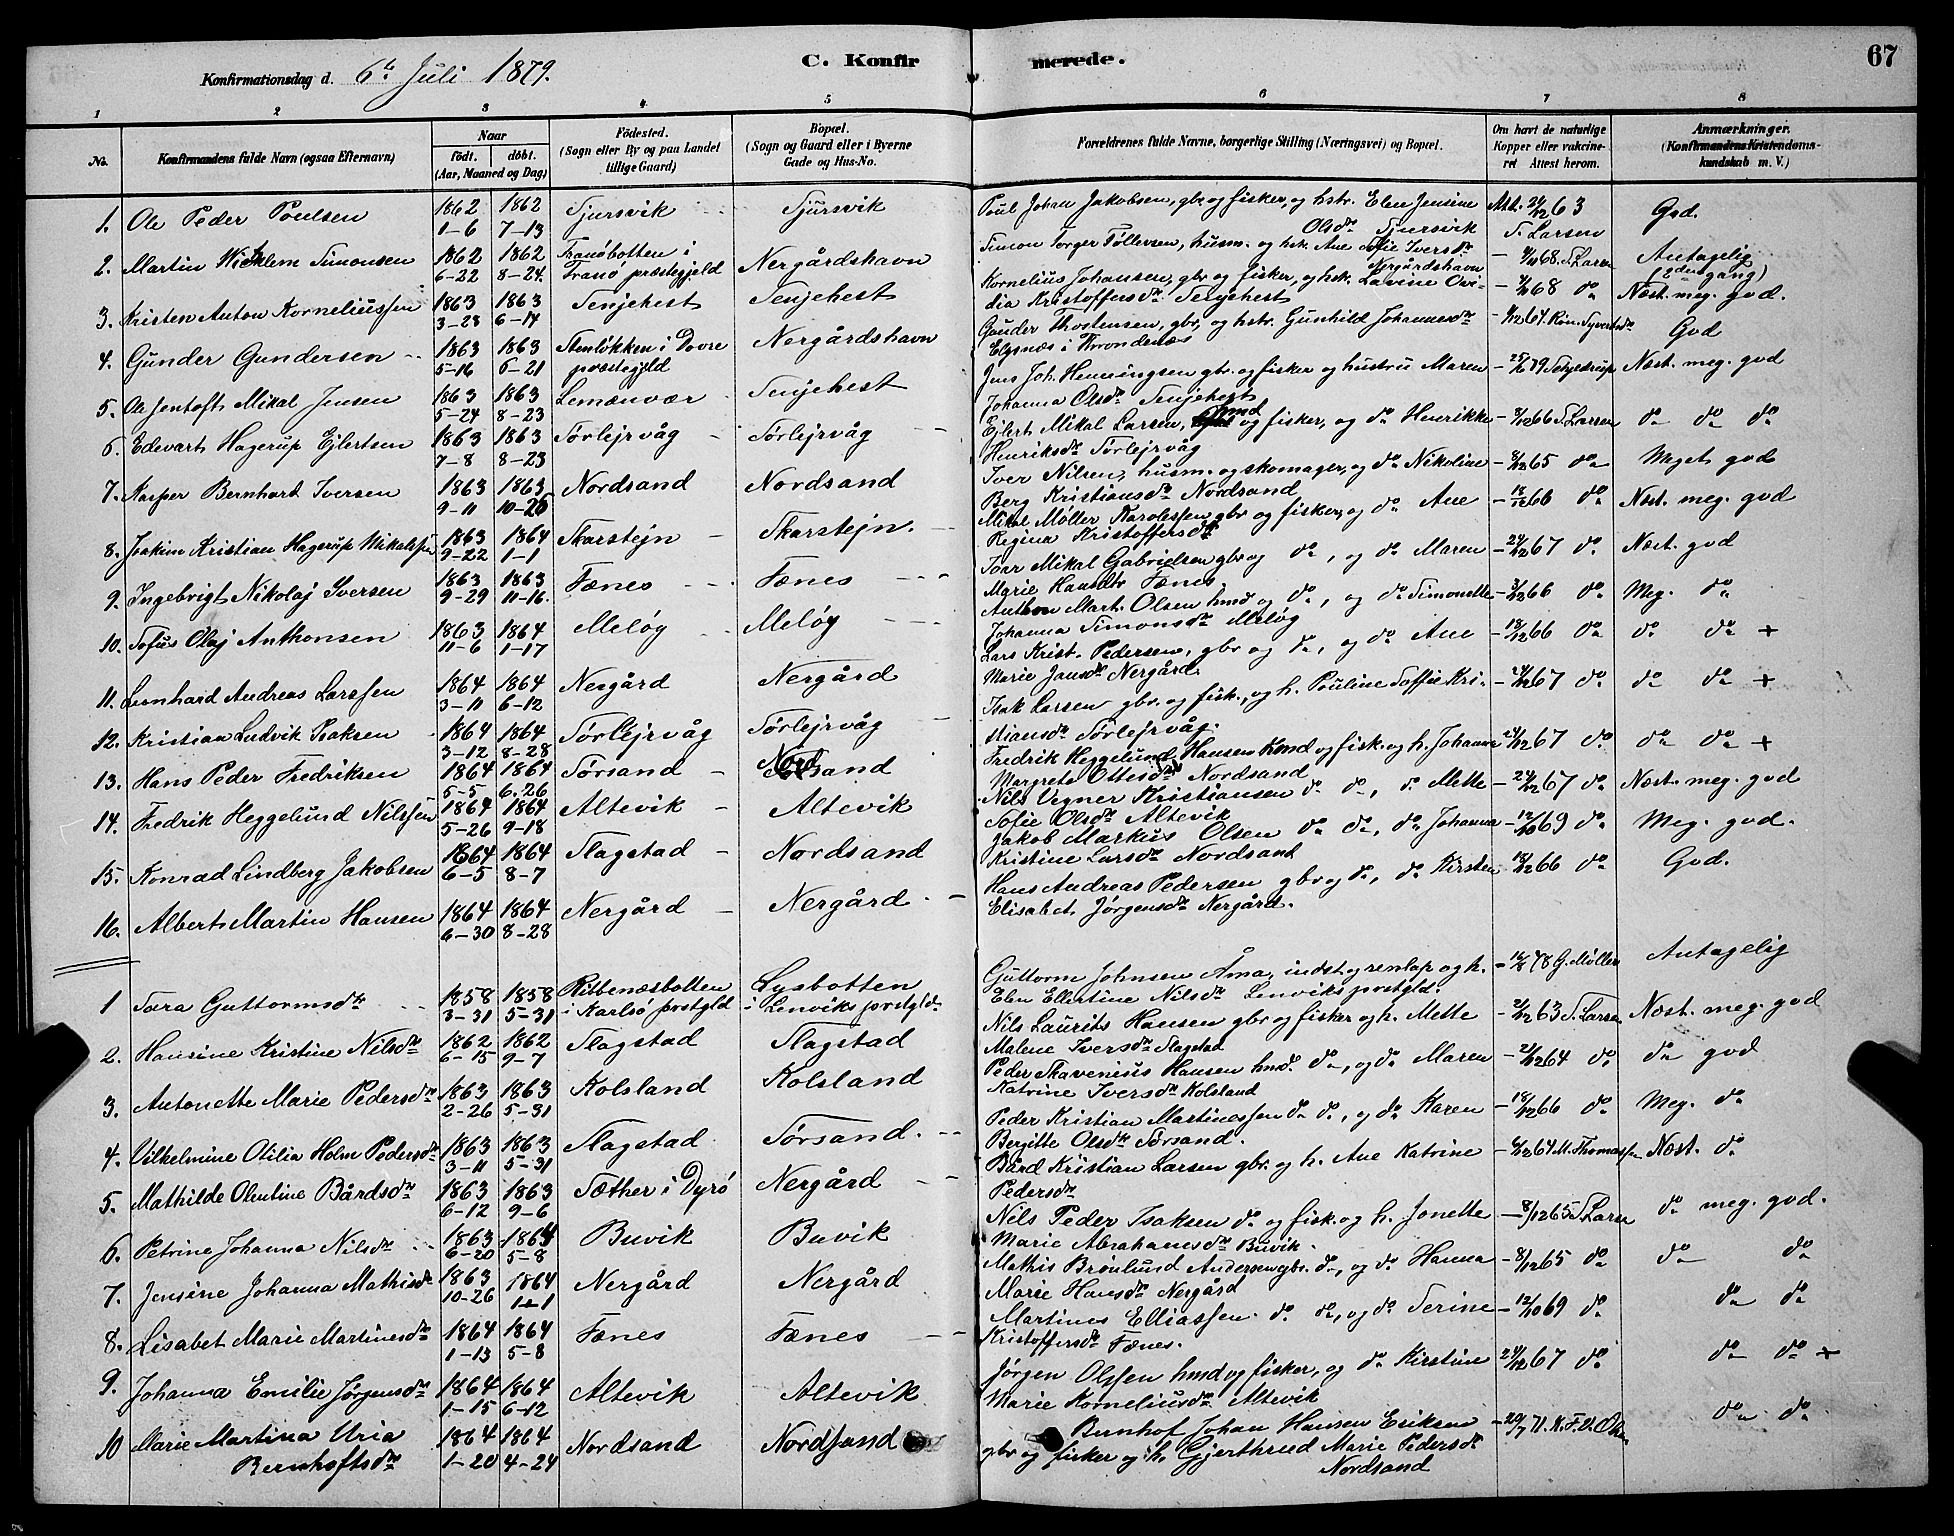 Konfirmationsdag d. 6te Juli 1879.
C. Konfirmerede.
67
1 2 3 4 5 6 7 8
No. Konfirmandens fulde Navn (ogsaa Efternavn) Naar født. døbt. (Aar, Maaned og Dag) Födested. (Sogn eller By og paa Landet tillige Gaard) Bopæl. (Sogn og Gaard eller i Byerne Gade og Hus-No. Forældrenes fulde Navne, borgerlige Stilling (Næringsvei) og Bopæl. Om havt de naturlige Kopper eller vakcineret Attest herom. Anmærkninger. (Konfirmandens Kristendomskundskab m. V.)
1. Ole Peder Poulsen 1862 1-6 1862 7-13 Sjursvik Sjursvik Poul Johan Jakobsen, gbr og fisker, og hstr. Elen Jensine Olsdr Sjursvik Att. 24/12 63 S. Larsen God.
2. Martin Wichlem Simonsen 1862 6-22 1862 8-24. Tranøbotten i Tranø præstegjeld Nergårdshavn Simon Torger Tøllefsen, husm. og hst. Ane Sofie Iversdr Nergårdshavn 68. S. Larsen Antagelig (2den gang)
3. Kristen Anton Korneliussen 1863 3-28 1863 6-14 Senjehest Senjehest Kornelius Johansen, gbr og fisker, og hst. Lavine Ovidia Kristoffersdr Senjehest 68 do Næst. meg. god.
4. Gunder Gundersen 1863 5-16 1863 6-21 Stenløkken i Dovre præstegjeld Nergårdshavn Gunder Thostensen, gbr, og hstr. Gunhild Johannesdr Elgsnæs i Trondenæs 64. God
5. Ole Jentoft Mikal Jensen 1863 5-24 1863 8-23 Lemænvær Senjehest Jens Joh. Henningsen gbr. og fisker og hustru Maren Johanna Olsdr Senjehest 79 Næst. meg. god
6. Edevart Hagerup Ejlertsen 1863 7-8 1863 8-23 Sørlejrvåg Sørlejrvåg Ejlert Mikal Larsen, hmd og fisker, og do Henrikke Henriksdr Sørlejrvåg 8/12 66 S. Larsen do do do
7. Kasper Bernhard Iversen 1863 9-11 1863 10-25 Nordsand Nordsand Iver Nilsen, husm. og skomager, og do Nikoline Berg Kristiansdr Nordsand 8/12 65 do Meget god
8. Joakim Kristian Hagerup Mikalsen 1863 9-22 1864 1-1 Skarstejn Skarstejn. Mikal Møller Karolessen gbr og fisker, og do Ane Regina Kristoffersdr 18/12 66 do Næst. meg. god
9. Ingebrigt Nikolaj Iversen 1863 9-29 1863 11-16. Fænes Fænes Ivar Mikal Gabrielsen gbr og do, og do Maren Marie Hansdtr Fænes 24/12 67 do Næst. god
10. Sofus Olaj Anthonsen 1863 11-6 1864 1-17 Meløy Meløy Anthon Mart. Olsen hmd og do, og do Simonette Johanna Simonsdr Meløy 3/12 66 do Meg. do
11. Leonhard Andreas Larssen 1864 3-11 1864 6-12 Nergård Nergård Lars Krist. Pedersen, gbr og do, og do Ane Marie Jansdr Nergård 18/12 66 do do do +
12. Kristian Ludvik Isaksen 1864 3-12 1864 8-28 Sørlejrvåg Sørlejrvåg Isak Larsen gbr. og fisk., og h. Pouline Soffie Kristiansdr Sørlejrvåg. 24/12 67 do do do +
13. Hans Peder Fredriksen 1864 5-5 1864 6.26 Sørsand Nordsand Fredrik Heggelund Hansen hmd og fisk. og h. Johanna Margrete Ottesdr Nordsand 24/12 67 do do do +
14. Fredrik Heggelund Nilssen 1864 5-26 1864 9-18 Altevik Altevik Nils Vegner Kristiansen do do, do Mette Sofie Olsdr Altevik 24/12 67 do Næst. meg. god
15. Konrad Lindberg Jakobsen 1864 6-5 1864 8-7 Slagstad Nordsand Jakob Markus Olsen do do, do Johanna Kristine Larsdr Nordsand 12/10 69 do Meg. god.
16. Albert Martin Hansen 1864 6-30 1864 8-28 Nergård Nergård. Hans Andreas Pedersen gbr og do, do Kirsten Elisabet Jørgensdr Nergård. 18/12 66 do God.
1 Sara Guttormsdr 1858 3-31 1858 5-31 Rittenæsbotten i Karlsø prstgld Lysbotten i Lenviks prstgld. Guttorm Johnsen Åma, indst. og renlap og h. Elen Ellertine Nilsdr Lenviks prstgld. 78 G. Møller Antagelig
2. Hansine Kristine Nilsdr 1862 6-15 1862 9-7 Slagstad Slagstad Nils Laurits Hansen gbr og fisker og h. Mette Malene Iversdr Slagstad 63 S. Larsen Næst. meg. god
3. Antonette Marie Pedersdr 1863 2-26 1863 5-31 Kolsland Kolsland Peder Skavenius Hansen hmd. do, og do Maren Katrine Iversdr Kolsland 21/12 64 do do god
4. Vilhelmine Otilia Holm Pedersdr 1863 3-11 1863 5-31 Slagstad Sørsand. Peder Kristian Martinussen do do, og do Karen Bergitte Olsdr Sørsand. 18/12 66 do Meg. do
5. Mathilde Olentine Bårdsdr 1863 6-12 1863 9-6 Sæther i Dyrø Nergård Bård Kristian Larsen gbr. og h. Ane Katrine Pedersdr 64 M. Thomassen Næst. do
6. Petrine Johanna Nilsdr 1863 6-20 1864 5-8 Buvik Buvik Nils Peder Isaksen do og fisk. og h. Jonette Marie Abrahamsdr Buvik 8/12 65 S. Larsen do meg. god.
7. Jensine Johanna Mathisdr 1863 10-26 1864 1-1 Nergård Nergård Mathis Brovlund Andersen gbr. do, og do Hanna Marie Hansdr Nergård 8/12 65 do do do
8. Lisabet Marie Martinesdr 1864 1-13 1864 5-8 Fænes Fænes Martines Elliassen do do, og do Serine Kristoffersdr Fænes. 12/10 69 do do do
9. Johanna Emilie Jørgensdr 1864 1-15 1864 6-12 Altevik Altevik Jørgen Olssen hmd og fisker, og do Kirstine Marie Korneliusdr Altevik 24/12 67 do do do +
10 Marie Martina Uria Bernhoftsdr 1864 1-20 1864 4-24 Nordsand Nordsand Bernhof Johan Hansen Eriksen gbr og fisker og h. Gjerthrud Marie Pedersdr Nordsand 20/7 71. do do